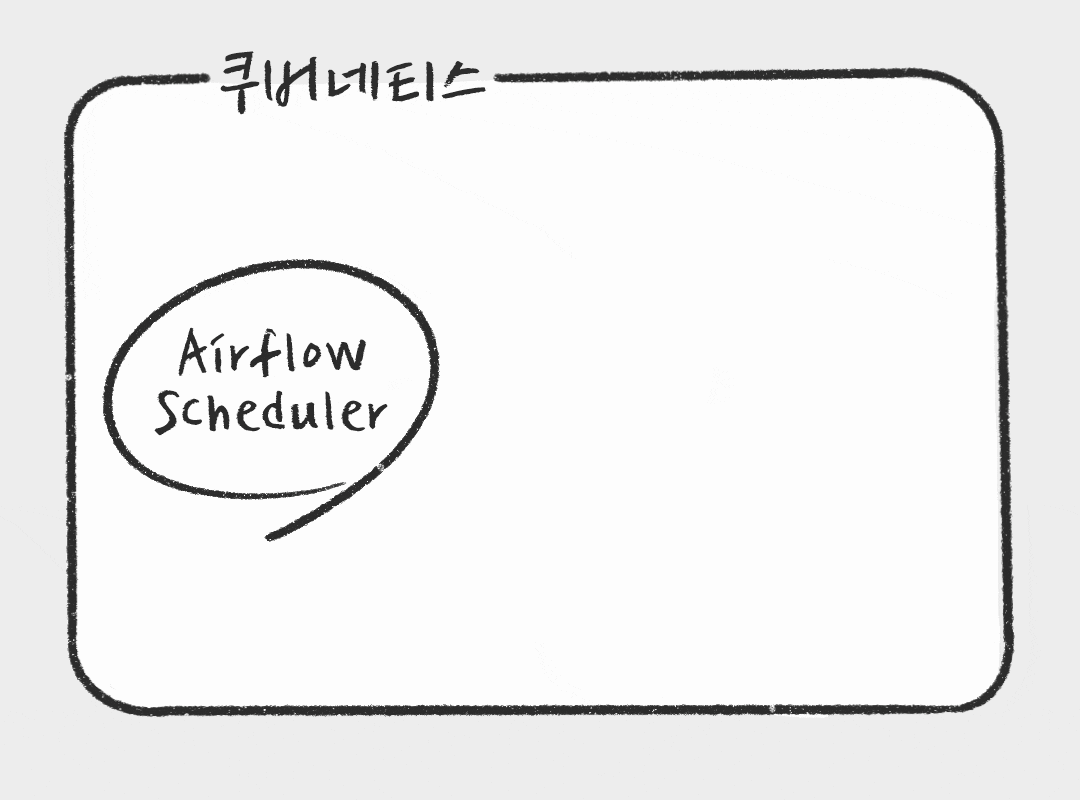 쿠버네티스
Airflow
Scheduler